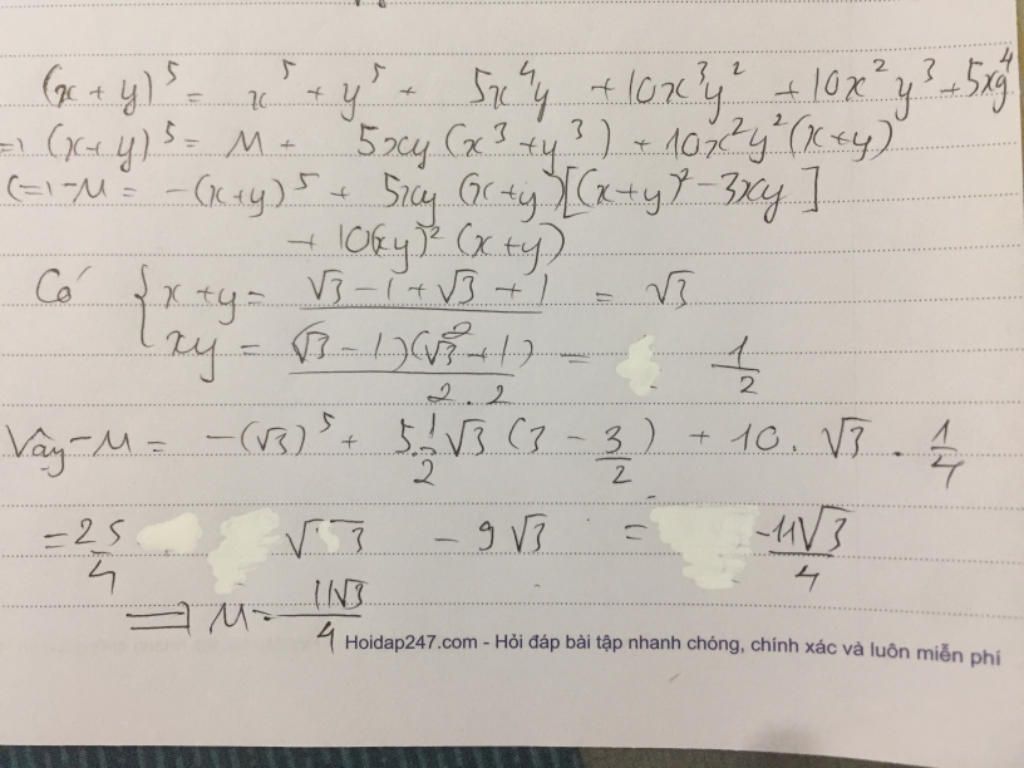 (x + y)^5 = x^5 + y^5 + 5x^4y + 10x^3y^2 + 10x^2y^3 + 5xy^4
=> (x+y)^5 = M + 5xy (x^3 + y^3) + 10x^2y^2 (x+y)
<=> -M = -(x+y)^5 + 5xy (x+y) [(x+y)^2 - 3xy]
+ 10(xy)^2 (x+y)
Có { x + y = (√3 - 1 + √3 + 1)/2 = √3
xy = ((√3 - 1)(√3 + 1))/(2.2) = 1/2
Vậy -M = -(√3)^5 + 5.1/2 √3 (3 - 3/2) + 10. √3 . 1/4
= 25/4 √3 - 9√3 = -11√3/4
=> M = 11√3/4
Hoidap247.com - Hỏi đáp bài tập nhanh chóng, chính xác và luôn miễn phí